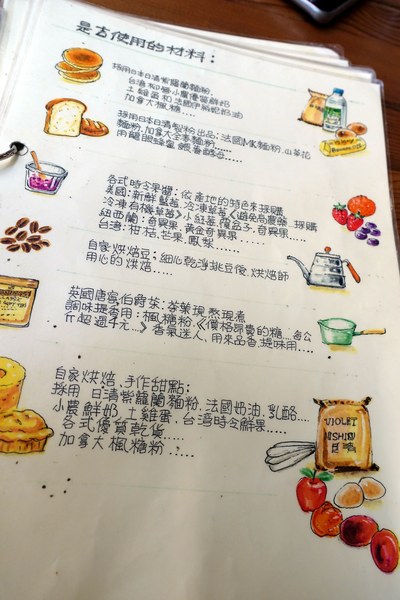 是去使用的材料:
採用日本日清紫羅蘭麵粉,
台灣柳營小農優質鮮奶
土雞蛋和法國伊斯尼奶油
加拿大楓糖....
採用日本日清製粉出品:法國MK麵粉,山茶花
麵粉,加拿大全麥麵粉....
用龍眼蜂蜜
各式時令果醬:依產地的特色來採購
美國:新鮮藍莓,冷凍草莓《避免農藥,採購
冷凍有機草莓》小紅莓,覆盆子,奇異果....
紐西蘭:奇異果,黃金奇異果
台灣:柑桔,芒果,鳳梨.....
自家烘焙豆:細心乾淨挑豆後,烘焙師
用心的烘焙....
英國唐寧伯爵茶:茶葉現熬現煮
調味提香用:楓糖粉,《價格昂貴的糖....每公
斤超過4元...》香氣迷人,用來品香,提味用....
自家烘焙、手作甜點:
採用 日清紫羅蘭麵粉,法國奶油,乳酪....
小農鮮奶,土雞蛋,台灣時令鮮果.....
各式優質乾貨....
加拿大楓糖粉....
VIOLET
NISSHIN
日清